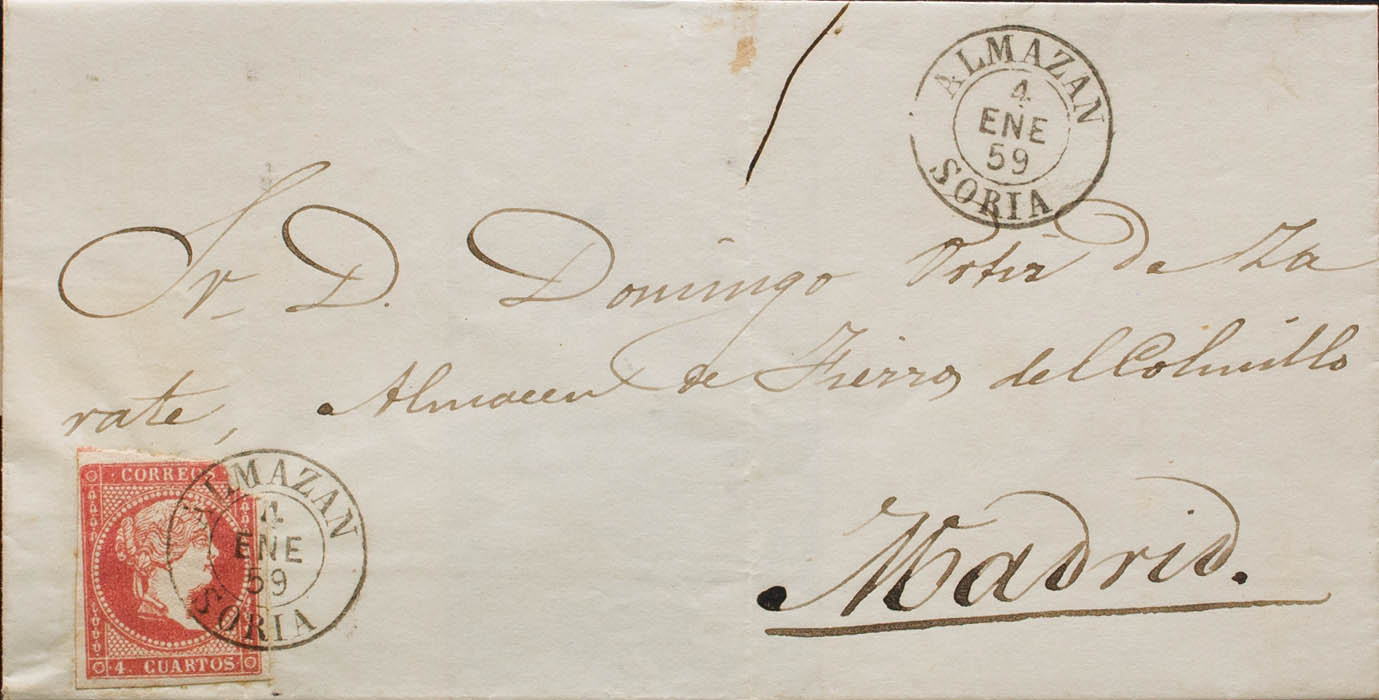 ALMAZAN
4
ENE
59
SORIA
Sr. D. Domingo Ortiz de Za
rate, Almacen de Fierro del Colmillo
Madrid.
CORREOS
4 CUARTOS
ALMAZAN
4
ENE
59
SORIA